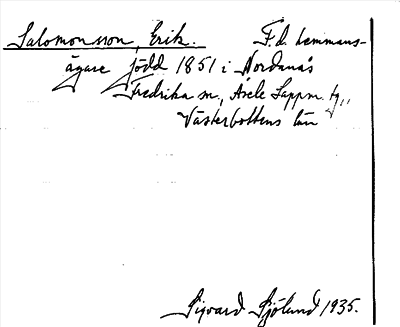 Salomonsson, Erik. F.d. hemmans-
ägare född 1851 i Nordanås
Fredrika sn., Åsele Lappm. tg.,
Västerbottens län
Sigvard Sjölund 1935.